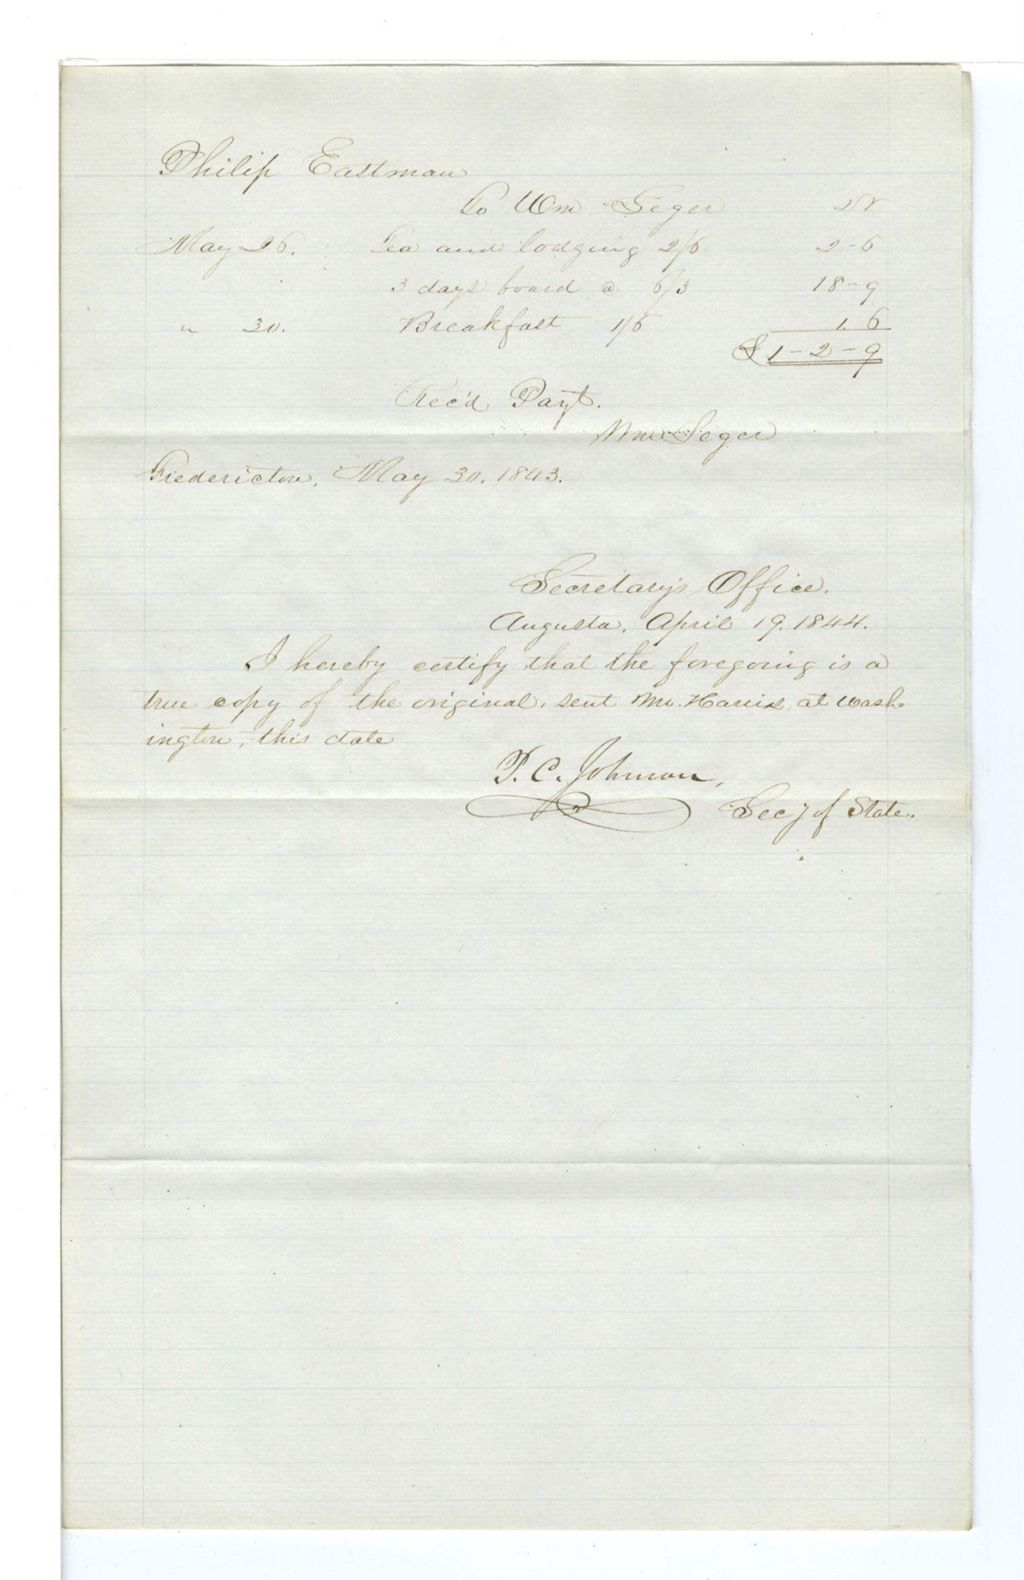 Philip Eastman
To Wm Seger Dr
May 26. Tea and lodging 2/6 2-6
3 days board @ 6/3 18-9
" 30. Breakfast 1/6 1.6
£ 1-2-9
Rec'd Payt.
Wm Seger
Fredericton, May 30. 1843.
Secretary's Office.
Augusta, April 19. 1844.
I hereby certify that the foregoing is a
true copy of the original, sent Mr. Harris, at Wash-
ington, this date
P. C. Johnson,
Sec'y of State.